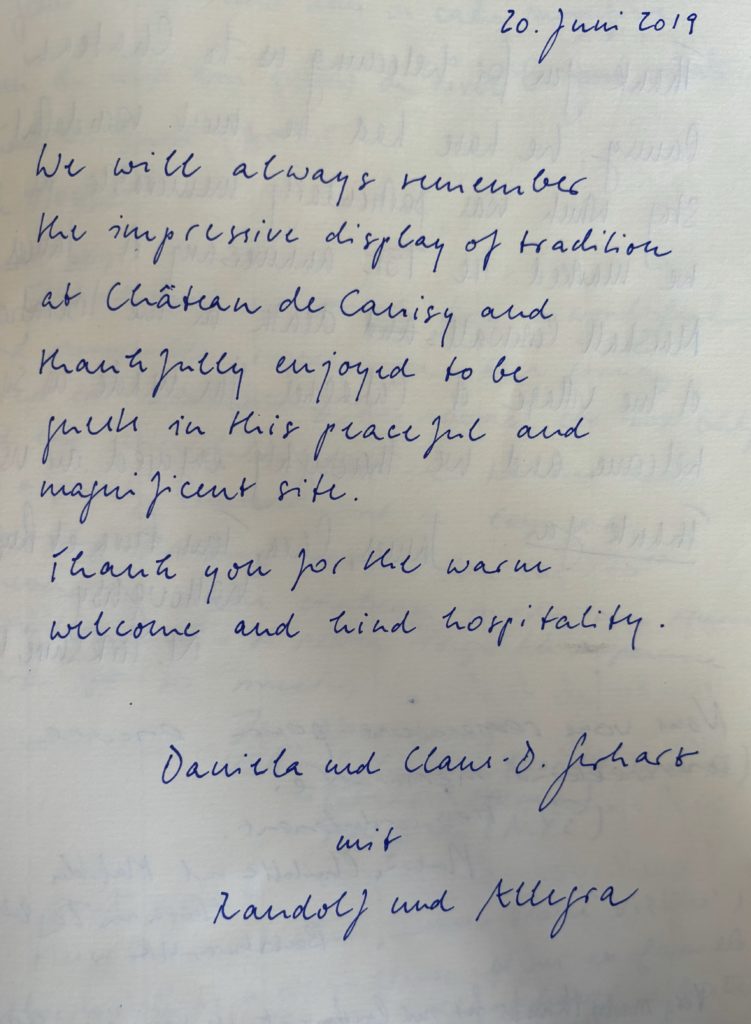 20. Juni 2019
We will always remember
the impressive display of tradition
at Château de Canisy and
thankfully enjoyed to be
guests in this peaceful and
magnificent site.
Thank you for the warm
welcome and kind hospitality.
Daniela und Claus-D. Gerhart
mit
Randolf und Allegra